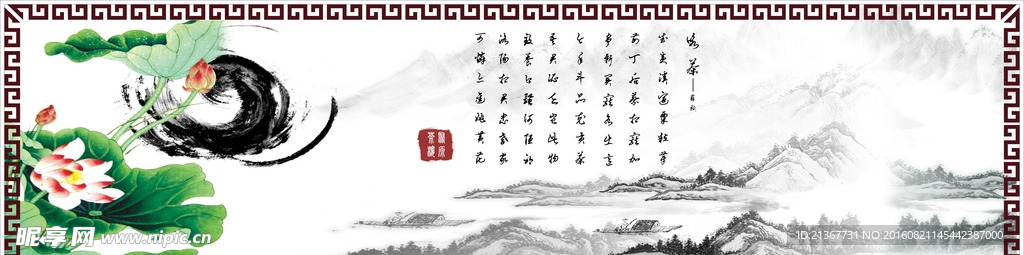 咏茶——苏轼
武夷溪边粟粒芽
前丁后蔡相宠加
争新买宠各出意
今年斗品充贡茶
吾君所乏岂此物
致养口体何陋耶
洛阳相君忠孝家
可怜亦进姚黄花
昵享网 www.nipic.cn
ID:21367731 NO:20160821145442387000